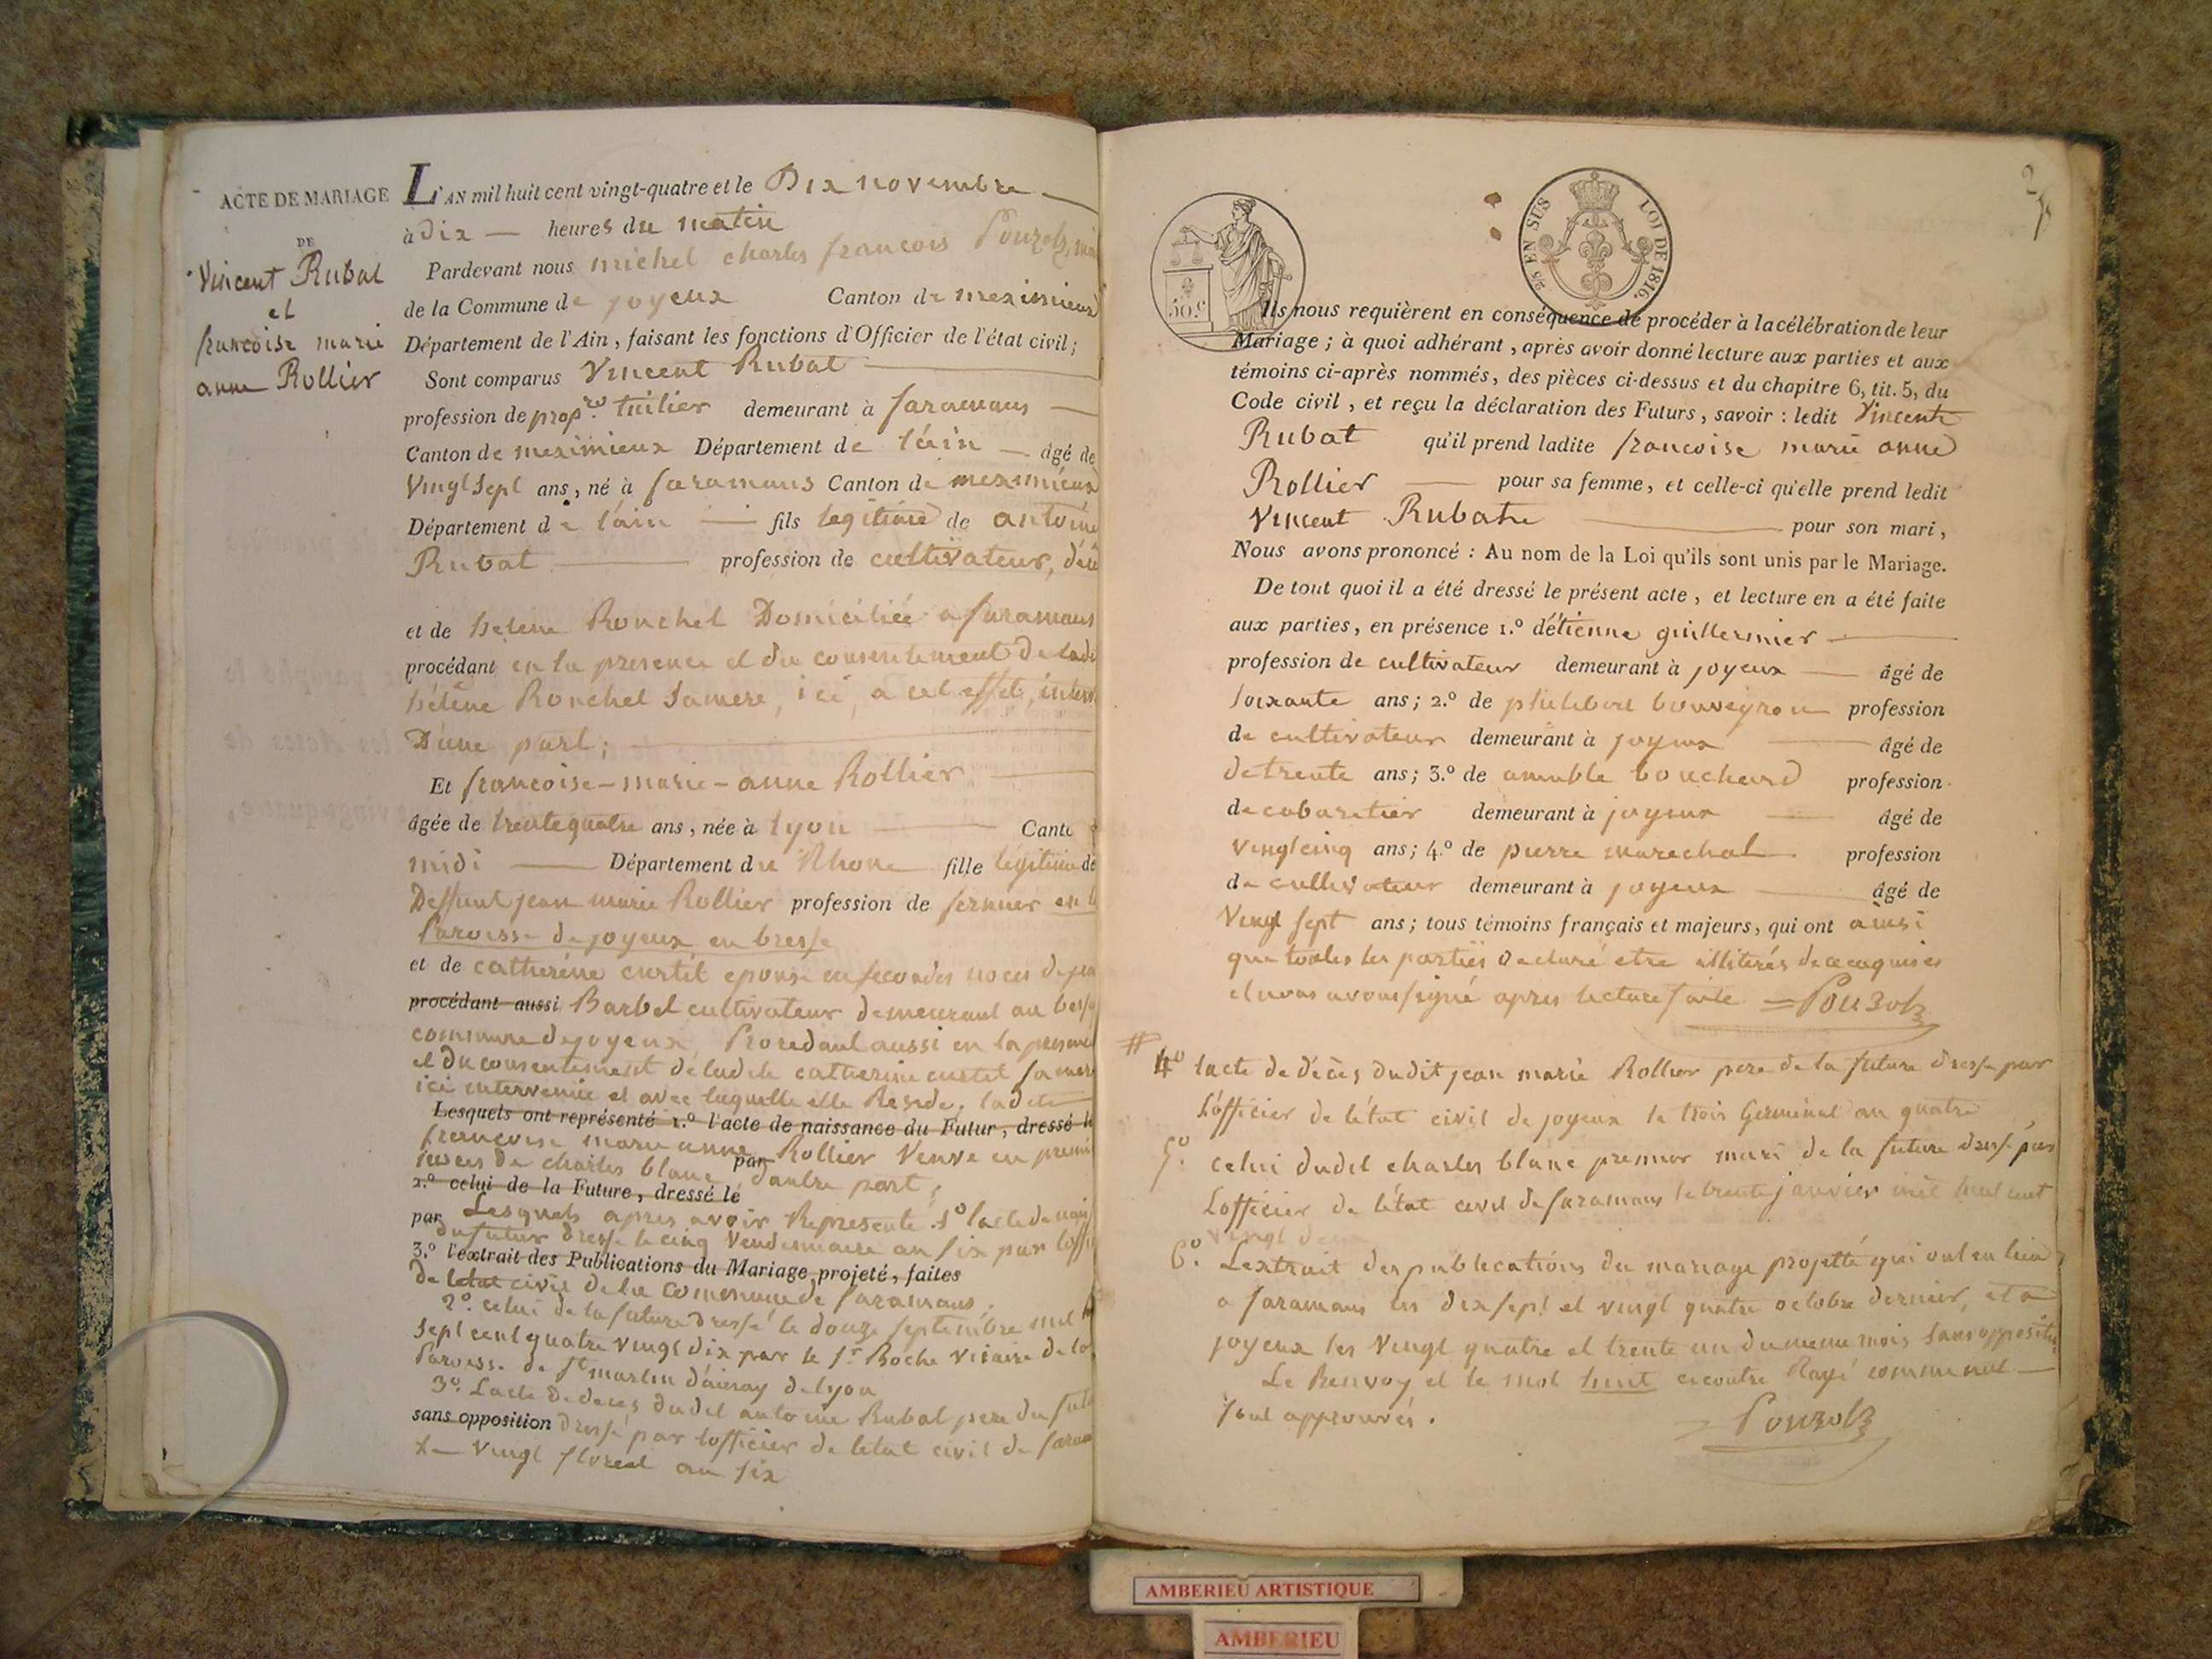 ACTE DE MARIAGE
DE
Vincent Rubat
et
francoise marie
anne Rollier
L'AN mil huit cent vingt-quatre et le Dix novembre
à dix heures du matin
Pardevant nous michel charles francois Pouzols,
de la Commune de joyeux Canton de meximieux
Département de l'Ain, faisant les fonctions d'Officier de l'état civil;
Sont comparus Vincent Rubat
profession de propre tuilier demeurant à faramans
Canton de meximieux Département de l'ain âgé de
Vingt sept ans, né à faramans Canton de meximieux
Département de l'ain fils légitime de antoine
Rubat profession de cultivateur,
et de helene Ronchel Domiciliée a faramans
procédant en la presence et du consentement de
hélène Ronchel sa mere, ici, a cet effet,
D'une part;
Et francoise-marie-anne Rollier
âgée de trente quatre ans, née à lyon
midi Département du Rhone fille légitime de
Deffunt jean marie Rollier profession de fermier en
Paroisse de joyeux en bresse
et de catherine curtil epouse en secondes noces de
procédant aussi Barbet cultivateur demeurant au
commune de joyeux, Procedant aussi en la
et du consentement de ladite catherine curtil sa mere
ici intervenue et avec laquelle elle Reside, ladite
Lesquels ont représenté 1.º l'acte de naissance du Futur, dressé le
francoise marie anne Rollier Veuve en
noces de charles blanc d'autre part;
par
2.º celui de la Future, dressé le
par Lesquels apres avoir Represente 1º lacte de
du futur dressé le cinq Vendemiaire an six par
3.º l'extrait des Publications du Mariage projeté, faites
de letat civil de la commune de faramans
2º. celui de la future dressé le douze septembre mil
sept cent quatre vingt dix par le Sr Roche Vicaire de la
Paroisse de St martin d'ainay de lyon
3º. Lacte de deces dudit antoine Rubat pere du
sans opposition dressé par lofficier de letat civil de
Le vingt floreal an six
50.c
25 EN SUS LOI DE 1816.
Ils nous requièrent en conséquence de procéder à la célébration de leur
Mariage; à quoi adhérant, après avoir donné lecture aux parties et aux
témoins ci-après nommés, des pièces ci-dessus et du chapitre 6, tit. 5, du
Code civil, et reçu la déclaration des Futurs, savoir: ledit Vincent
Rubat qu'il prend ladite francoise marie anne
Rollier pour sa femme, et celle-ci qu'elle prend ledit
Vincent Rubat pour son mari,
Nous avons prononcé: Au nom de la Loi qu'ils sont unis par le Mariage.
De tout quoi il a été dressé le présent acte, et lecture en a été faite
aux parties, en présence 1.º d'étienne guillermier
profession de cultivateur demeurant à joyeux âgé de
soixante ans; 2.º de philibert bouveyron profession
de cultivateur demeurant à joyeux âgé de
de trente ans; 3.º de amable bouchard profession
de cabaretier demeurant à joyeux âgé de
vingt cinq ans; 4.º de pierre marechal profession
de cultivateur demeurant à joyeux âgé de
Vingt sept ans; tous témoins français et majeurs, qui ont ainsi
que toutes les parties declaré etre illitérés de ce enquises
et nous avons signé apres lecture faite = Pouzols
# 4º lacte de décès dudit jean marie Rollier pere de la future dressé par
Lofficier de létat civil de joyeux le trois Germinal an quatre
5º. celui dudit charles blanc premier mari de la future dressé par
Lofficier de létat civil de faramans le trente janvier mil huit cent
vingt deux
6º. Lextrait des publications du mariage projetté qui ont eu lieu
a faramans les dix sept et vingt quatre octobre dernier, et a
joyeux les Vingt quatre et trente un du meme mois sans opposition
Le Renvoy et le mot huit cicontre Rayé comme nul
sont approuvés.
Pouzols
AMBERIEU ARTISTIQUE
AMBERIEU